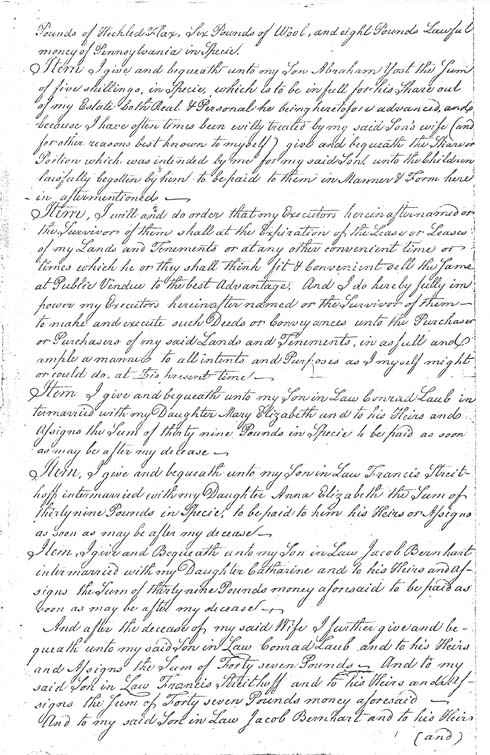 Pounds of Hechled Flax, Six Pounds of Wool, and eight Pounds Lawful
money of Pennsylvania in Specie.
Item I give and bequeath unto my Son Abraham Yost the Sum
of five shillings, in Specie, which is to be in full for his Share out
of my Estate both Real & Personal he being heretofore advanced, and
because I have often times been evilly treated by my said Son's wife (and
for other reasons best known to myself) give and bequeath the Share or
Portion which was intended by me for my said Son unto the Children
lawfully begotten by him to be paid to them in Manner & Form here
in aftermentioned
Item, I will and do order that my Executors hereinafter named or
the Survivor of them shall at the Expiration of the Lease or Leases
of my Lands and Tenements or at any other convenient time or
times which he or they shall think fit & Convenient sell the Same
at Public Vendue to the best Advantage. And I do hereby fully im
power my Executors hereinafter named or the Survivor of them
to make and execute such Deeds or Conveyances unto the Purchaser
or Purchasers of my said Lands and Tenements, in as full and
ample a manner to all intents and Purposes as I myself might
or could do, at this present time
Item I give and bequeath unto my Son in Law Conrad Laub in
termarried with my Daughter Mary Elizabeth and to his Heirs and
Assigns the Sum of thirty nine Pounds in Specie to be paid as soon
as may be after my decease
Item, I give and bequeath unto my Son in Law Francis Streit-
hoff intermarried with my Daughter Anna Elizabeth the Sum of
thirty nine Pounds in Specie, to be paid to him his Heirs or Assigns
as soon as may be after my decease
Item, I give and Bequeath unto my Son in Law Jacob Bernhart
intermarried with my Daughter Catharine and to his Heirs and As-
signs the Sum of thirty nine Pounds money aforesaid to be paid as
soon as may be after my decease
And after the decease of my said Wife I further give and be-
queath unto my said Son in Law Conrad Laub and to his Heirs
and Assigns the Sum of Forty seven Pounds And to my
said Son in Law Francis Streithoff and to his Heirs and As-
signs the Sum of Forty seven Pounds money aforesaid
And to my said Son in Law Jacob Bernhart and to his Heirs
(and)